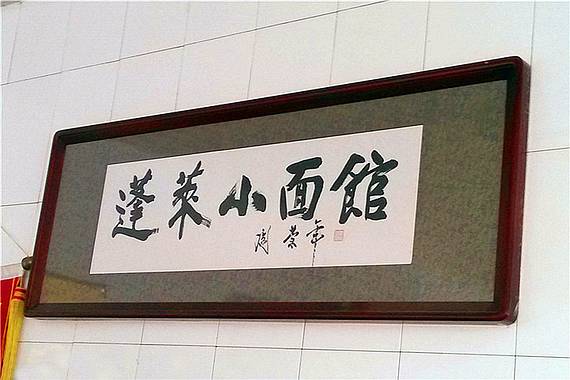 蓬萊小面館